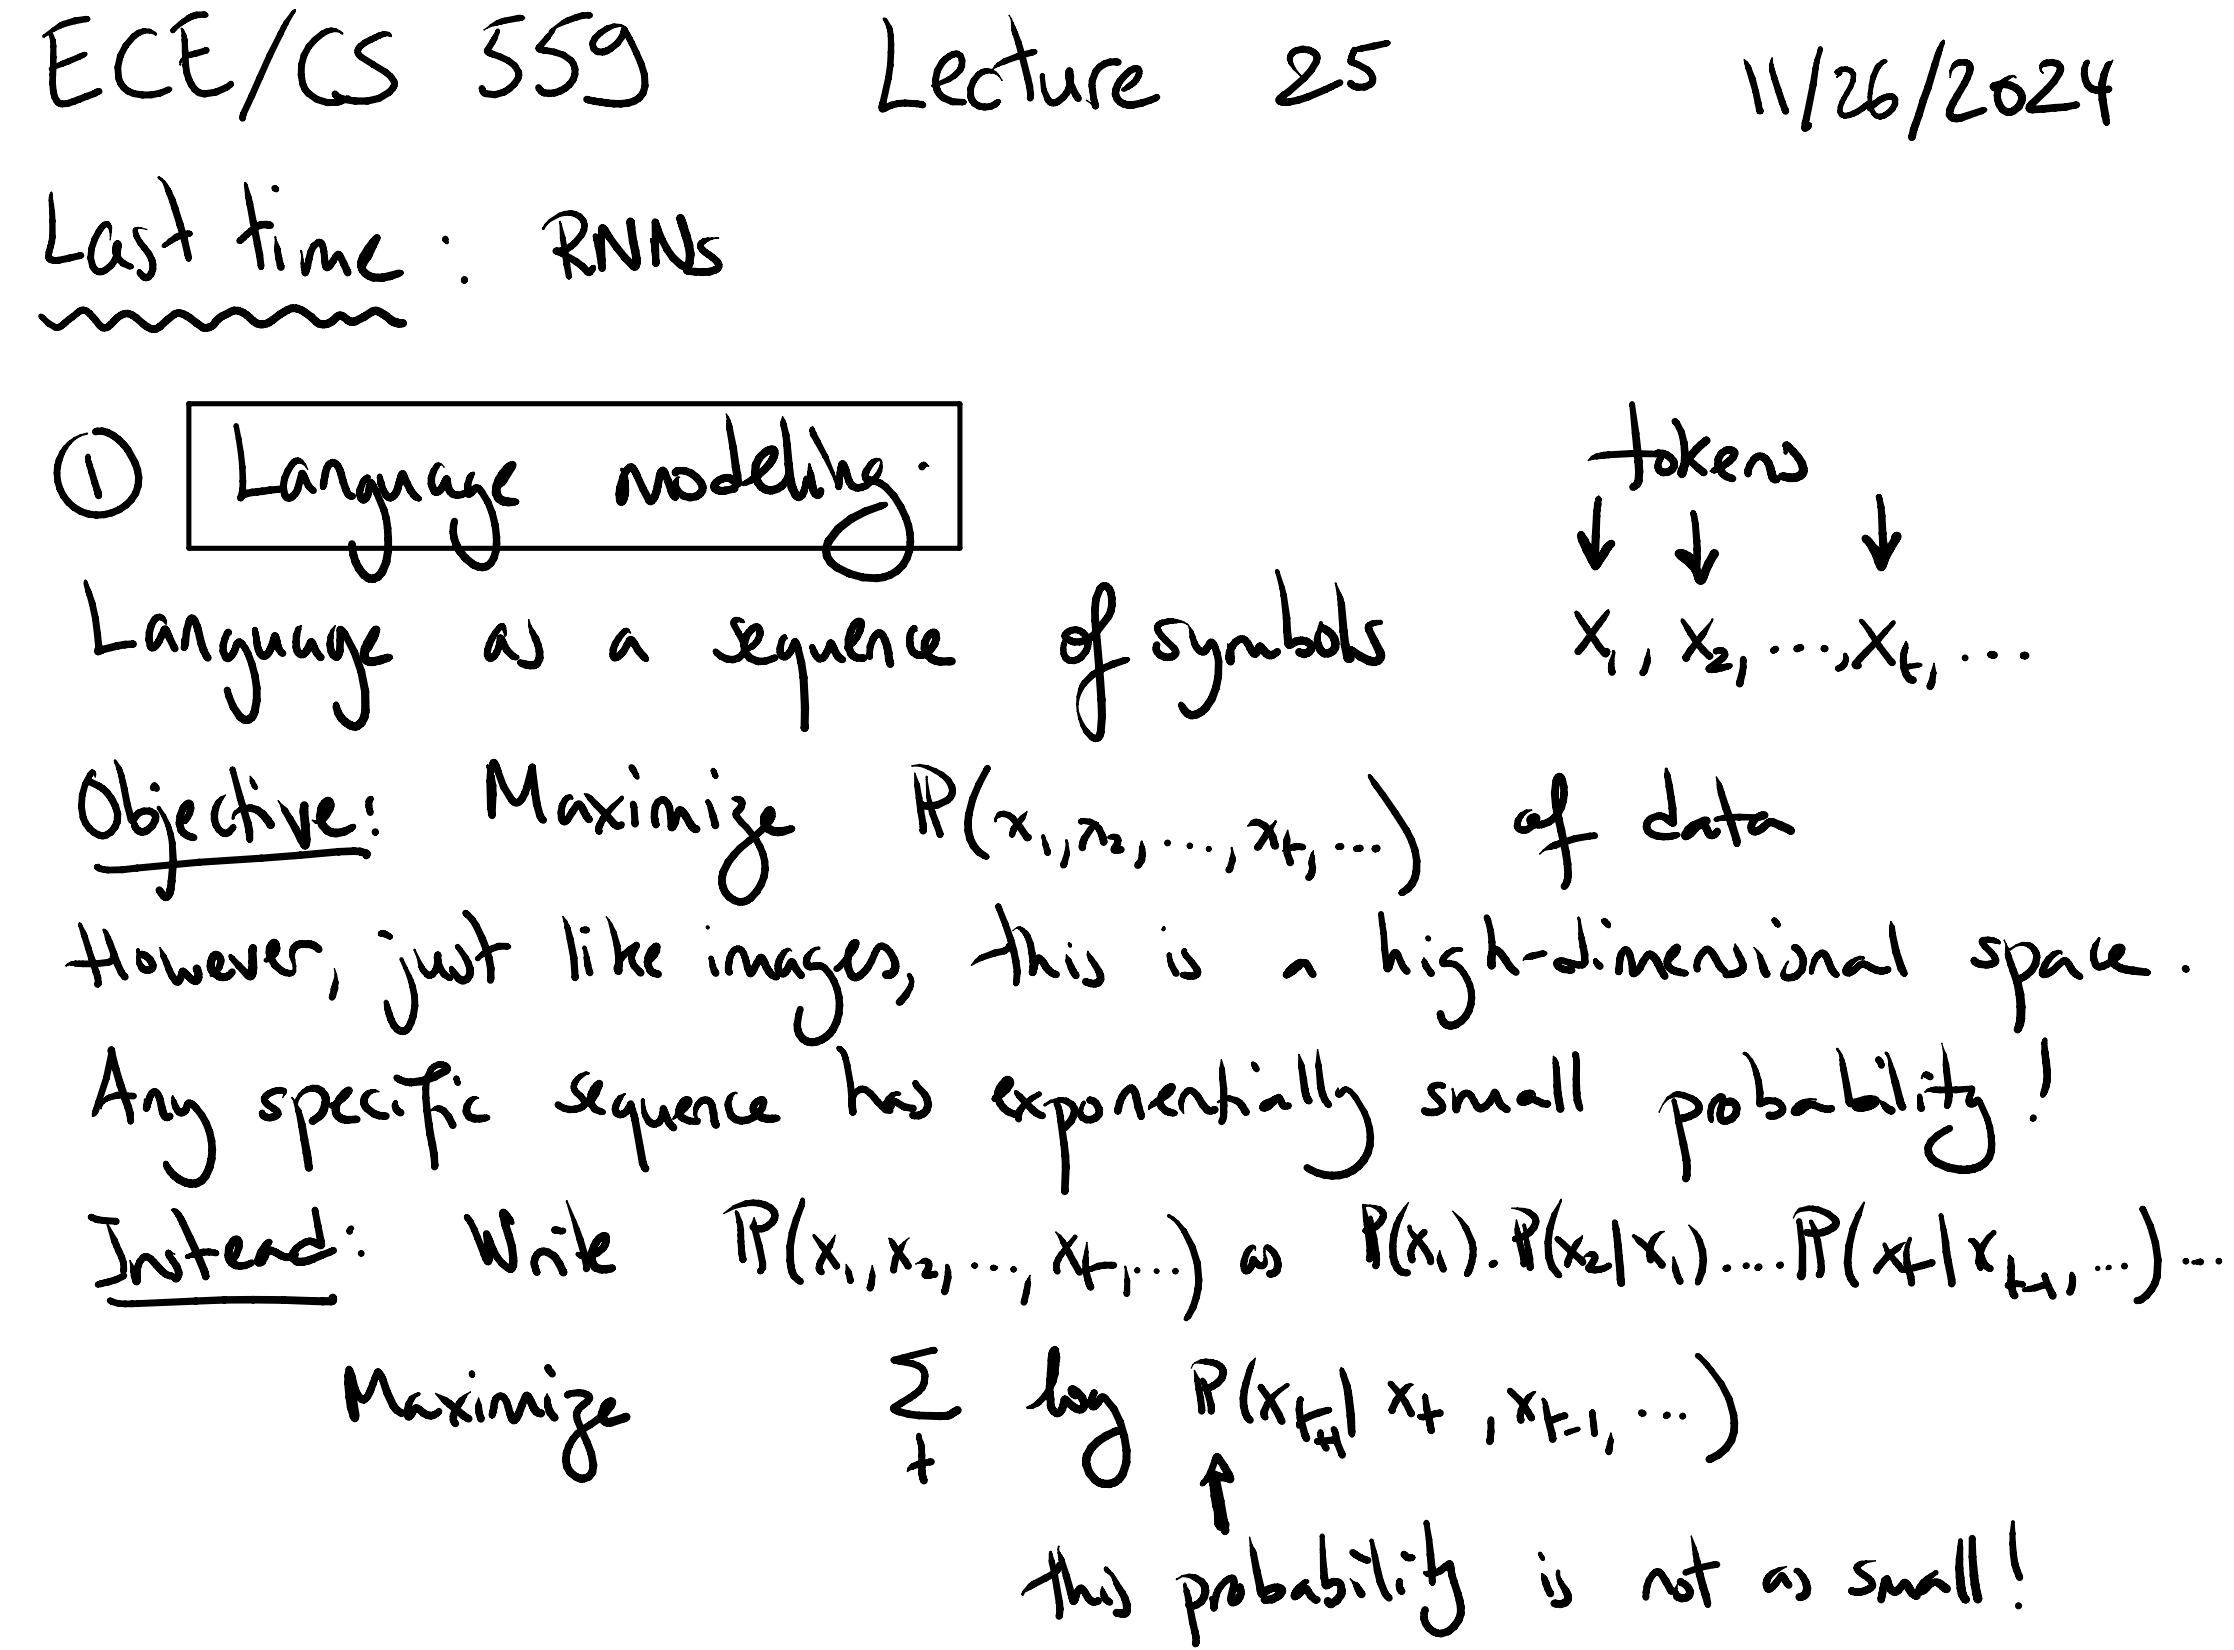 ECE/CS 559 Lecture 25 11/26/2024
Last time : RNNs
① Language modeling. tokens
↓ ↓ ↓
Language as a sequence of symbols x₁, x₂, ..., xₜ, ...
Objective: Maximize ℙ(x₁, x₂, ..., xₜ, ...) of data
However, just like images, this is a high-dimensional space.
Any specific sequence has exponentially small probability!
Instead: Write ℙ(x₁, x₂, ..., xₜ, ...) as ℙ(x₁).ℙ(x₂|x₁)....ℙ(xₜ|xₜ₋₁, ...)...
Maximize Σₜ log ℙ(xₜ₊₁|xₜ, xₜ₋₁, ...)
↑
this probability is not as small!